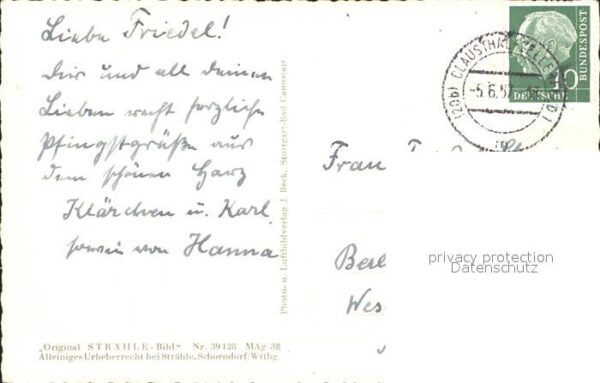 Liebe Friedel!
Dir und all deinen
Lieben recht herzliche
Pfingstgrüße aus
dem schönen Harz
Klärchen u. Karl
sowie von Hanna
„Original STRÄHLE-Bild“ Nr. 39128 MAg 38
Alleiniges Urheberrecht bei Strähle, Schorndorf/Wttbg.
Photo- u. Luftbildverlag J. Beck, Stuttgart-Bad Cannstatt
(20b) CLAUSTHAL-ZELLERFELD
-5.6.57
10
DEUTSCHE
BUNDESPOST
Frau
Berl
Wes
privacy protection
Datenschutz